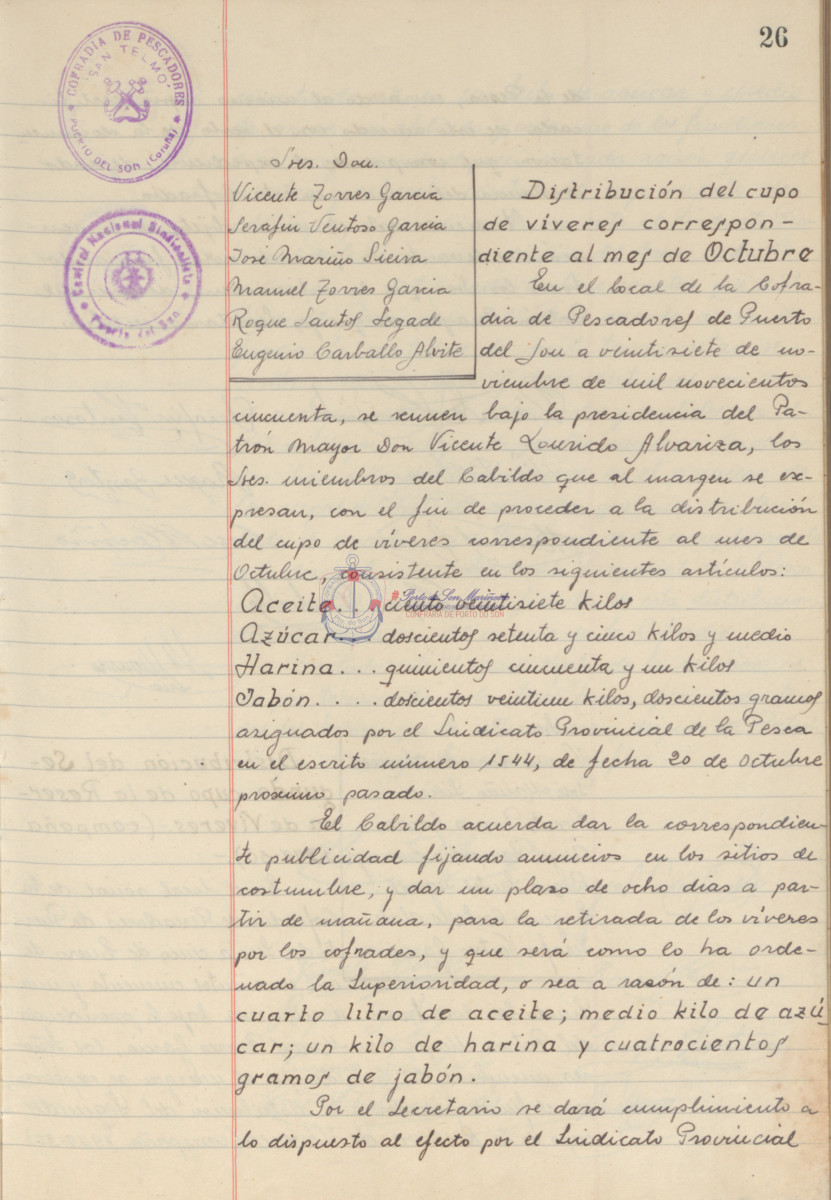 26
COFRADIA DE PESCADORES
"SAN TELMO"
PUERTO DEL SON (Coruña)
Central Nacional Sindicalista
Puerto del Son
Sres. Don.
Vicente Torres Garcia
Serafin Ventoso Garcia
José Mariño Sieira
Manuel Torres Garcia
Roque Santos Segade
Eugenio Carballo Alvite
Distribución del cupo
de víveres correspon-
diente al mes de Octubre
En el local de la Cofra-
dia de Pescadores de Puerto
del Son a veintisiete de no-
viembre de mil novecientos
cincuenta, se reunen bajo la presidencia del Pa-
trón Mayor Don Vicente Lourido Alvariza, los
Sres. miembros del Cabildo que al margen se ex-
presan, con el fin de proceder a la distribución
del cupo de víveres correspondiente al mes de
Octubre, consistente en los siguientes artículos:
Aceite... ciento veintisiete kilos
Porto do Son Mariñeiro
CONFRARÍA DE PORTO DO SON
Azúcar... doscientos setenta y cinco kilos y medio
Harina... quinientos cincuenta y un kilos
Jabón.... doscientos veintiun kilos, doscientos gramos
asignados por el Sindicato Provincial de la Pesca
en el escrito número 1544, de fecha 20 de Octubre
próximo pasado.
El Cabildo acuerda dar la correspondien-
te publicidad fijando anuncios en los sitios de
costumbre, y dar un plazo de ocho dias a par-
tir de mañana, para la retirada de los víveres
por los cofrades, y que será como lo ha orde-
nado la Superioridad, o sea a razón de: un
cuarto litro de aceite; medio kilo de azú-
car; un kilo de harina y cuatrocientos
gramos de jabón.
Por el Secretario se dará cumplimiento a
lo dispuesto al efecto por el Sindicato Provincial